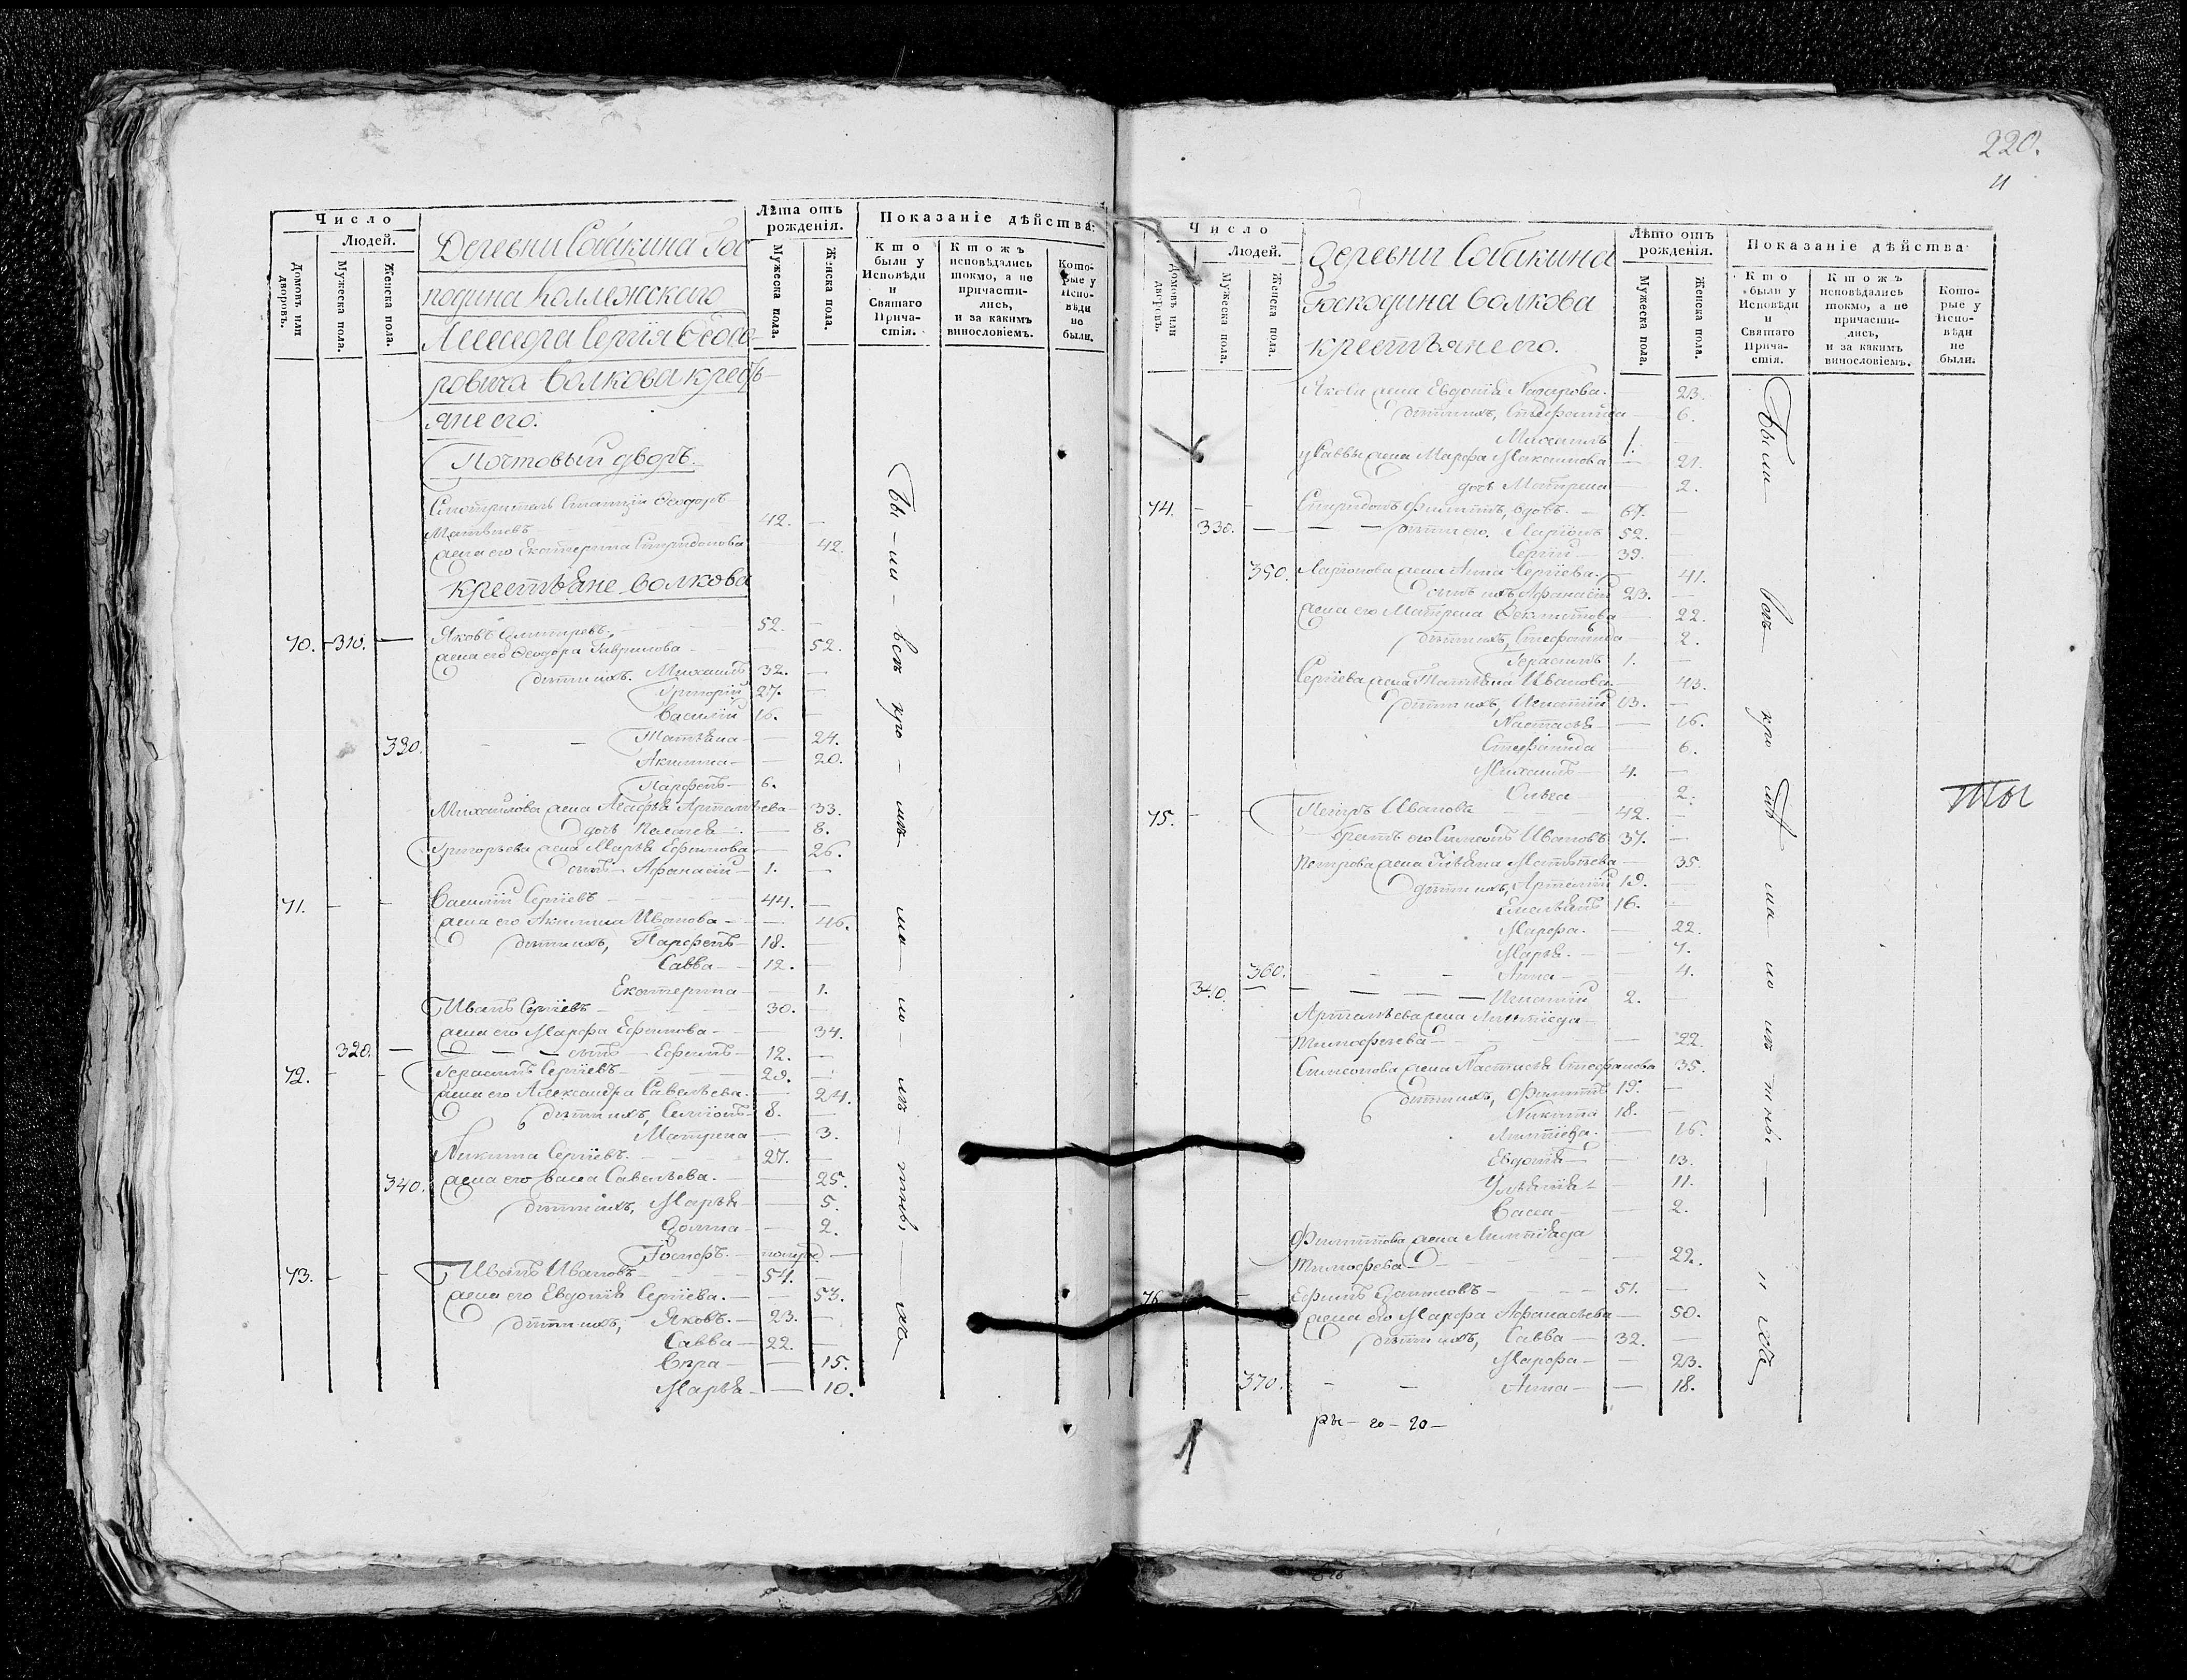 220.
Число
Людей.
Домовъ или дворовъ.
Мужеска пола.
Женска пола.
Деревни Собакина Гос
подина Коллежскаго
Ассесора Сергія Ѳеодо-
ровича Волкова кресть-
яне его.
Почтовый дворъ.
Лѣта отъ рожденія.
Мужеска пола.
Женска пола.
Показаніе дѣйства:
Кто были у Исповѣди и Святаго Прича- стія.
Ктожъ исповѣдались токмо, а не причасти- лись, и за какимъ винословіемъ.
Кото- рые у Испо- вѣди не были.
Смотритель Станціи Ѳеодоръ
Матвѣевъ 42.
жена его Екатерина Спиридонова 42.
Крестьяне Волкова
70. 310. Яковъ Дмитріевъ 52.
жена его Ѳеодора Гаврилова 52.
дѣти ихъ. Михаилъ 32.
Григорій 27.
Василій 16.
330. Татьяна 24.
Акилина 20.
Парфенъ 6.
Михайлова жена Агафья Артемьева 33.
дочь Пелагея 8.
Григорьева жена Марья Ефимова 26.
сынъ Афанасій 1.
71. Василій Сергіевъ 44.
жена его Акилина Иванова 46.
дѣти ихъ, Парфенъ 18.
Савва 12.
Екатерина 1.
Иванъ Сергіевъ 30.
жена его Марфа Ефимова 34.
320. сынъ Ефимъ 12.
72. Герасимъ Сергіевъ 29.
жена его Александра Савельева. 24.
дѣти ихъ, Семіонъ 8.
Матрена 3.
Никита Сергіевъ. 27.
340. жена его Васса Савельева. 25.
дѣти ихъ, Марья 5.
Домна 2.
Іосифъ
73. Иванъ Ивановъ 54.
жена его Евдокія Сергіева. 53.
дѣти ихъ, Яковъ. 23.
Савва 22.
Вѣра 15.
Марья 10.
Бы-ли-всѣ кро-мѣ
Число
Людей.
Домовъ или дворовъ.
Мужеска пола.
Женска пола.
Деревни Собакина
Господина Волкова
крестьяне его.
Лѣто отъ рожденія.
Мужеска пола.
Женска пола.
Показаніе дѣйства
Кто были у Исповѣди и Святаго Прича- стія.
Ктожъ исповѣдались токмо, а не причасти- лись, и за какимъ винословіемъ.
Кото- рые у Испо- вѣди не были.
Якова жена Евдокія Назарова. 23.
дѣти ихъ, Стефанида 6.
Михаилъ 1.
Саввы жена Марфа Максимова 21.
дочь Матрена 2.
74. Спиридонъ Филиппъ, вдовъ. 67.
330. дѣти его. Ларіонъ 52.
Сергій 39.
350. Ларіонова жена Анна Сергіева. 41.
сынъ ихъ Афанасій 23.
жена его Матрена Ѳектистова 22.
дѣти ихъ, Стефанида 2.
Герасимъ 1.
Сергіева жена Татьяна Иванова. 43.
дѣти ихъ, Игнатій 13.
Настасья 16.
Стефанида 6.
Михаилъ 4.
Ольга 2.
75. Петръ Ивановъ 42.
братъ его Симеонъ Ивановъ 37.
Петрова жена Ульяна Матвѣева 35.
дѣти ихъ, Артемій 19.
Емельянъ 16.
Марфа. 22.
Марья. 7.
360. Анна 4.
340. Игнатій 2.
Артемьева жена
Тимофеева 22.
Симеонова жена Настасья Стефанова 35.
дѣти ихъ, Филиппъ 19.
Никита 18.
16.
Евдокія 13.
Ульянія 11.
Васса 2.
Филиппова жена
Тимофеева 22.
76. Ефимъ Даниловъ 51.
жена его Марфа Афанасьева 50.
дѣти ихъ, Савва 32.
Марфа 23.
370. Анна 18.
Были всѣ кромѣ
ты